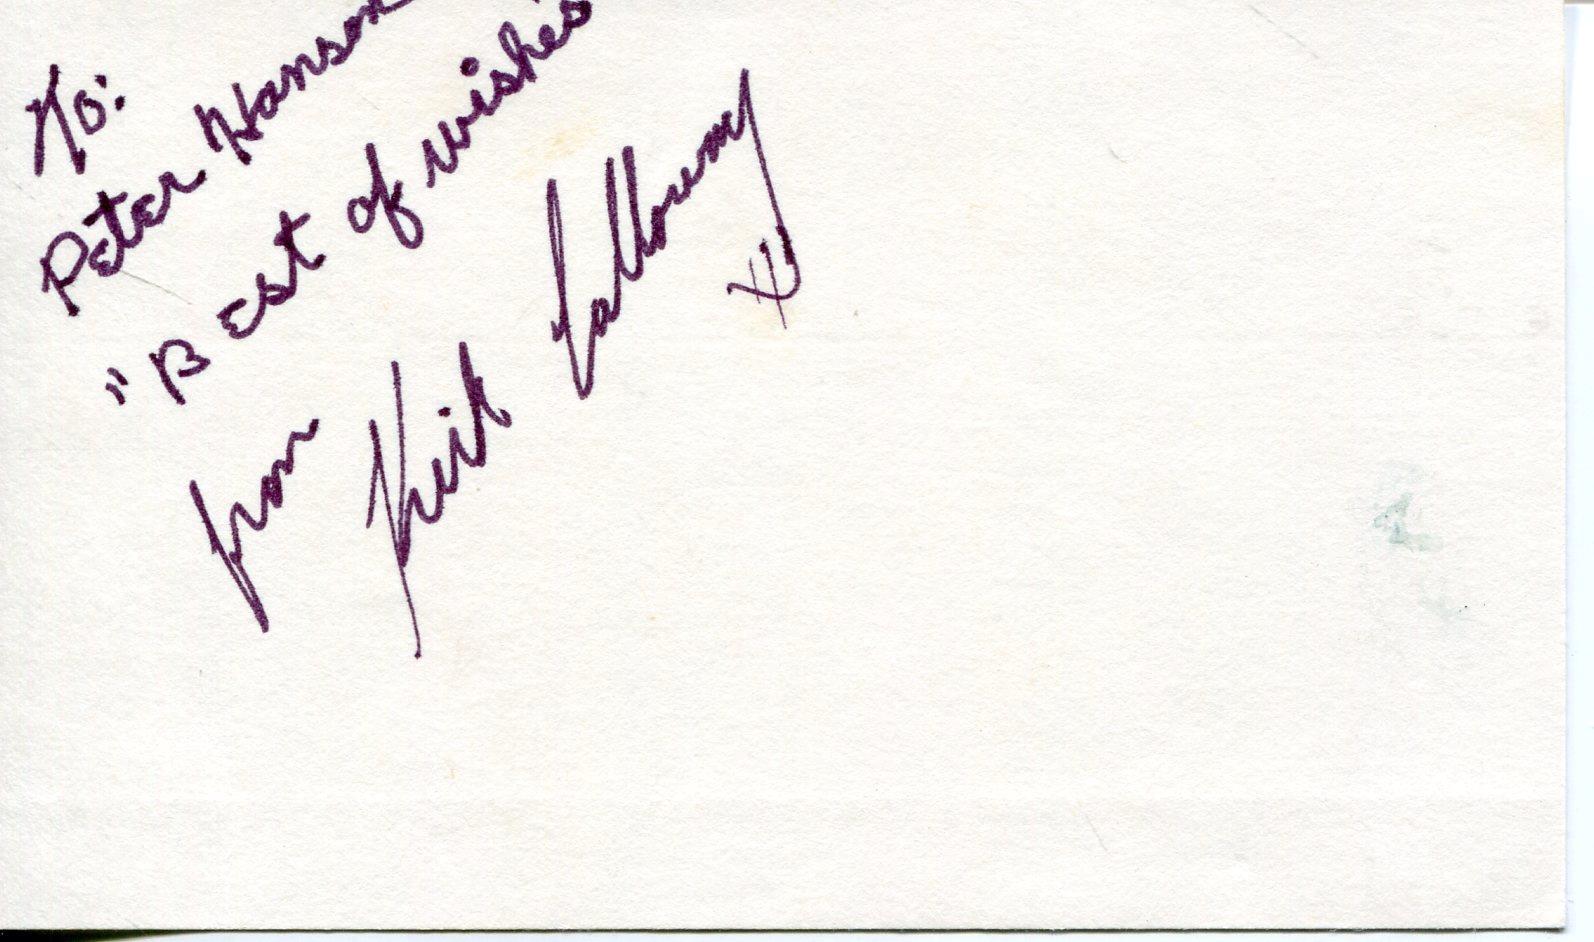 To:
Peter Hanson
"Best of wishes
from Kirk Calloway